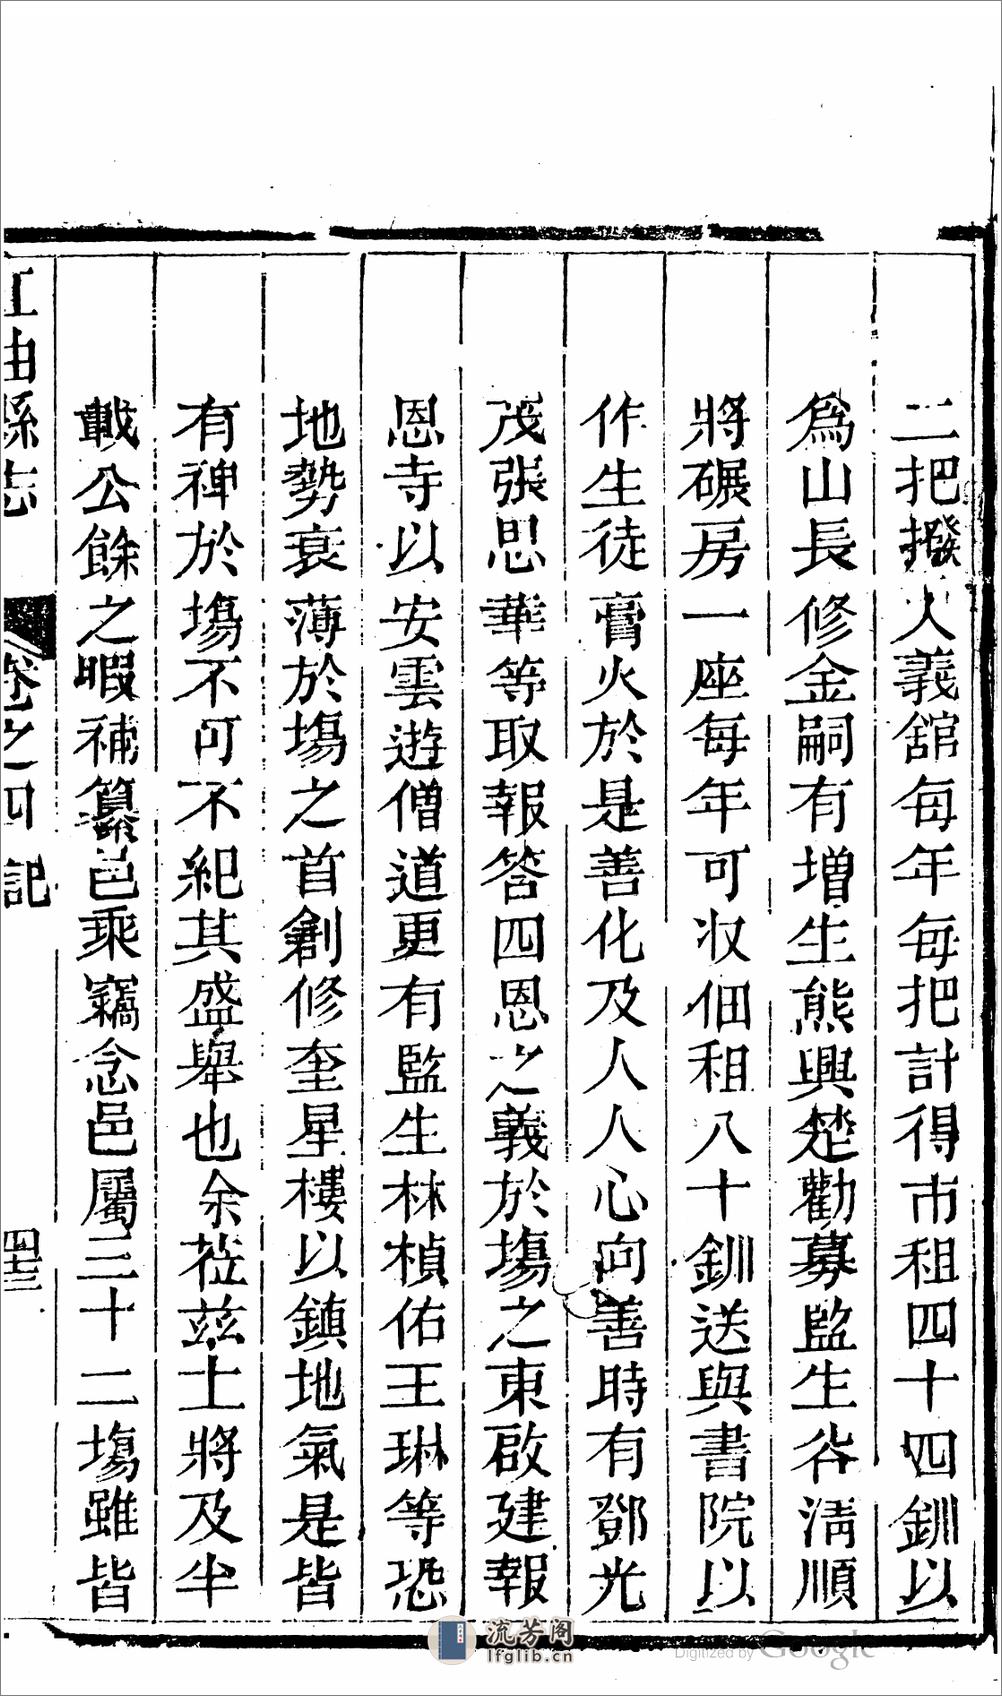 二把撥入義舘每年每把計得市租四十四釧以
爲山長修金嗣有增生熊興楚勸募監生谷淸順
將碾房一座每年可收佃租八十釧送與書院以
作生徒膏火於是善化及人人心向善時有鄧光
茂張思華等取報答四恩之義於塲之東啟建報
恩寺以安雲遊僧道更有監生林楨佑王琳等恐
地勢衰薄於塲之首創修奎星樓以鎮地氣是皆
有裨於塲不可不紀其盛舉也余莅兹土將及半
載公餘之暇補纂邑乘竊念邑屬三十二塲雖皆
江油縣志 卷之四 記 四十三
流芳阁
lfglib.cn
Digitized by Google